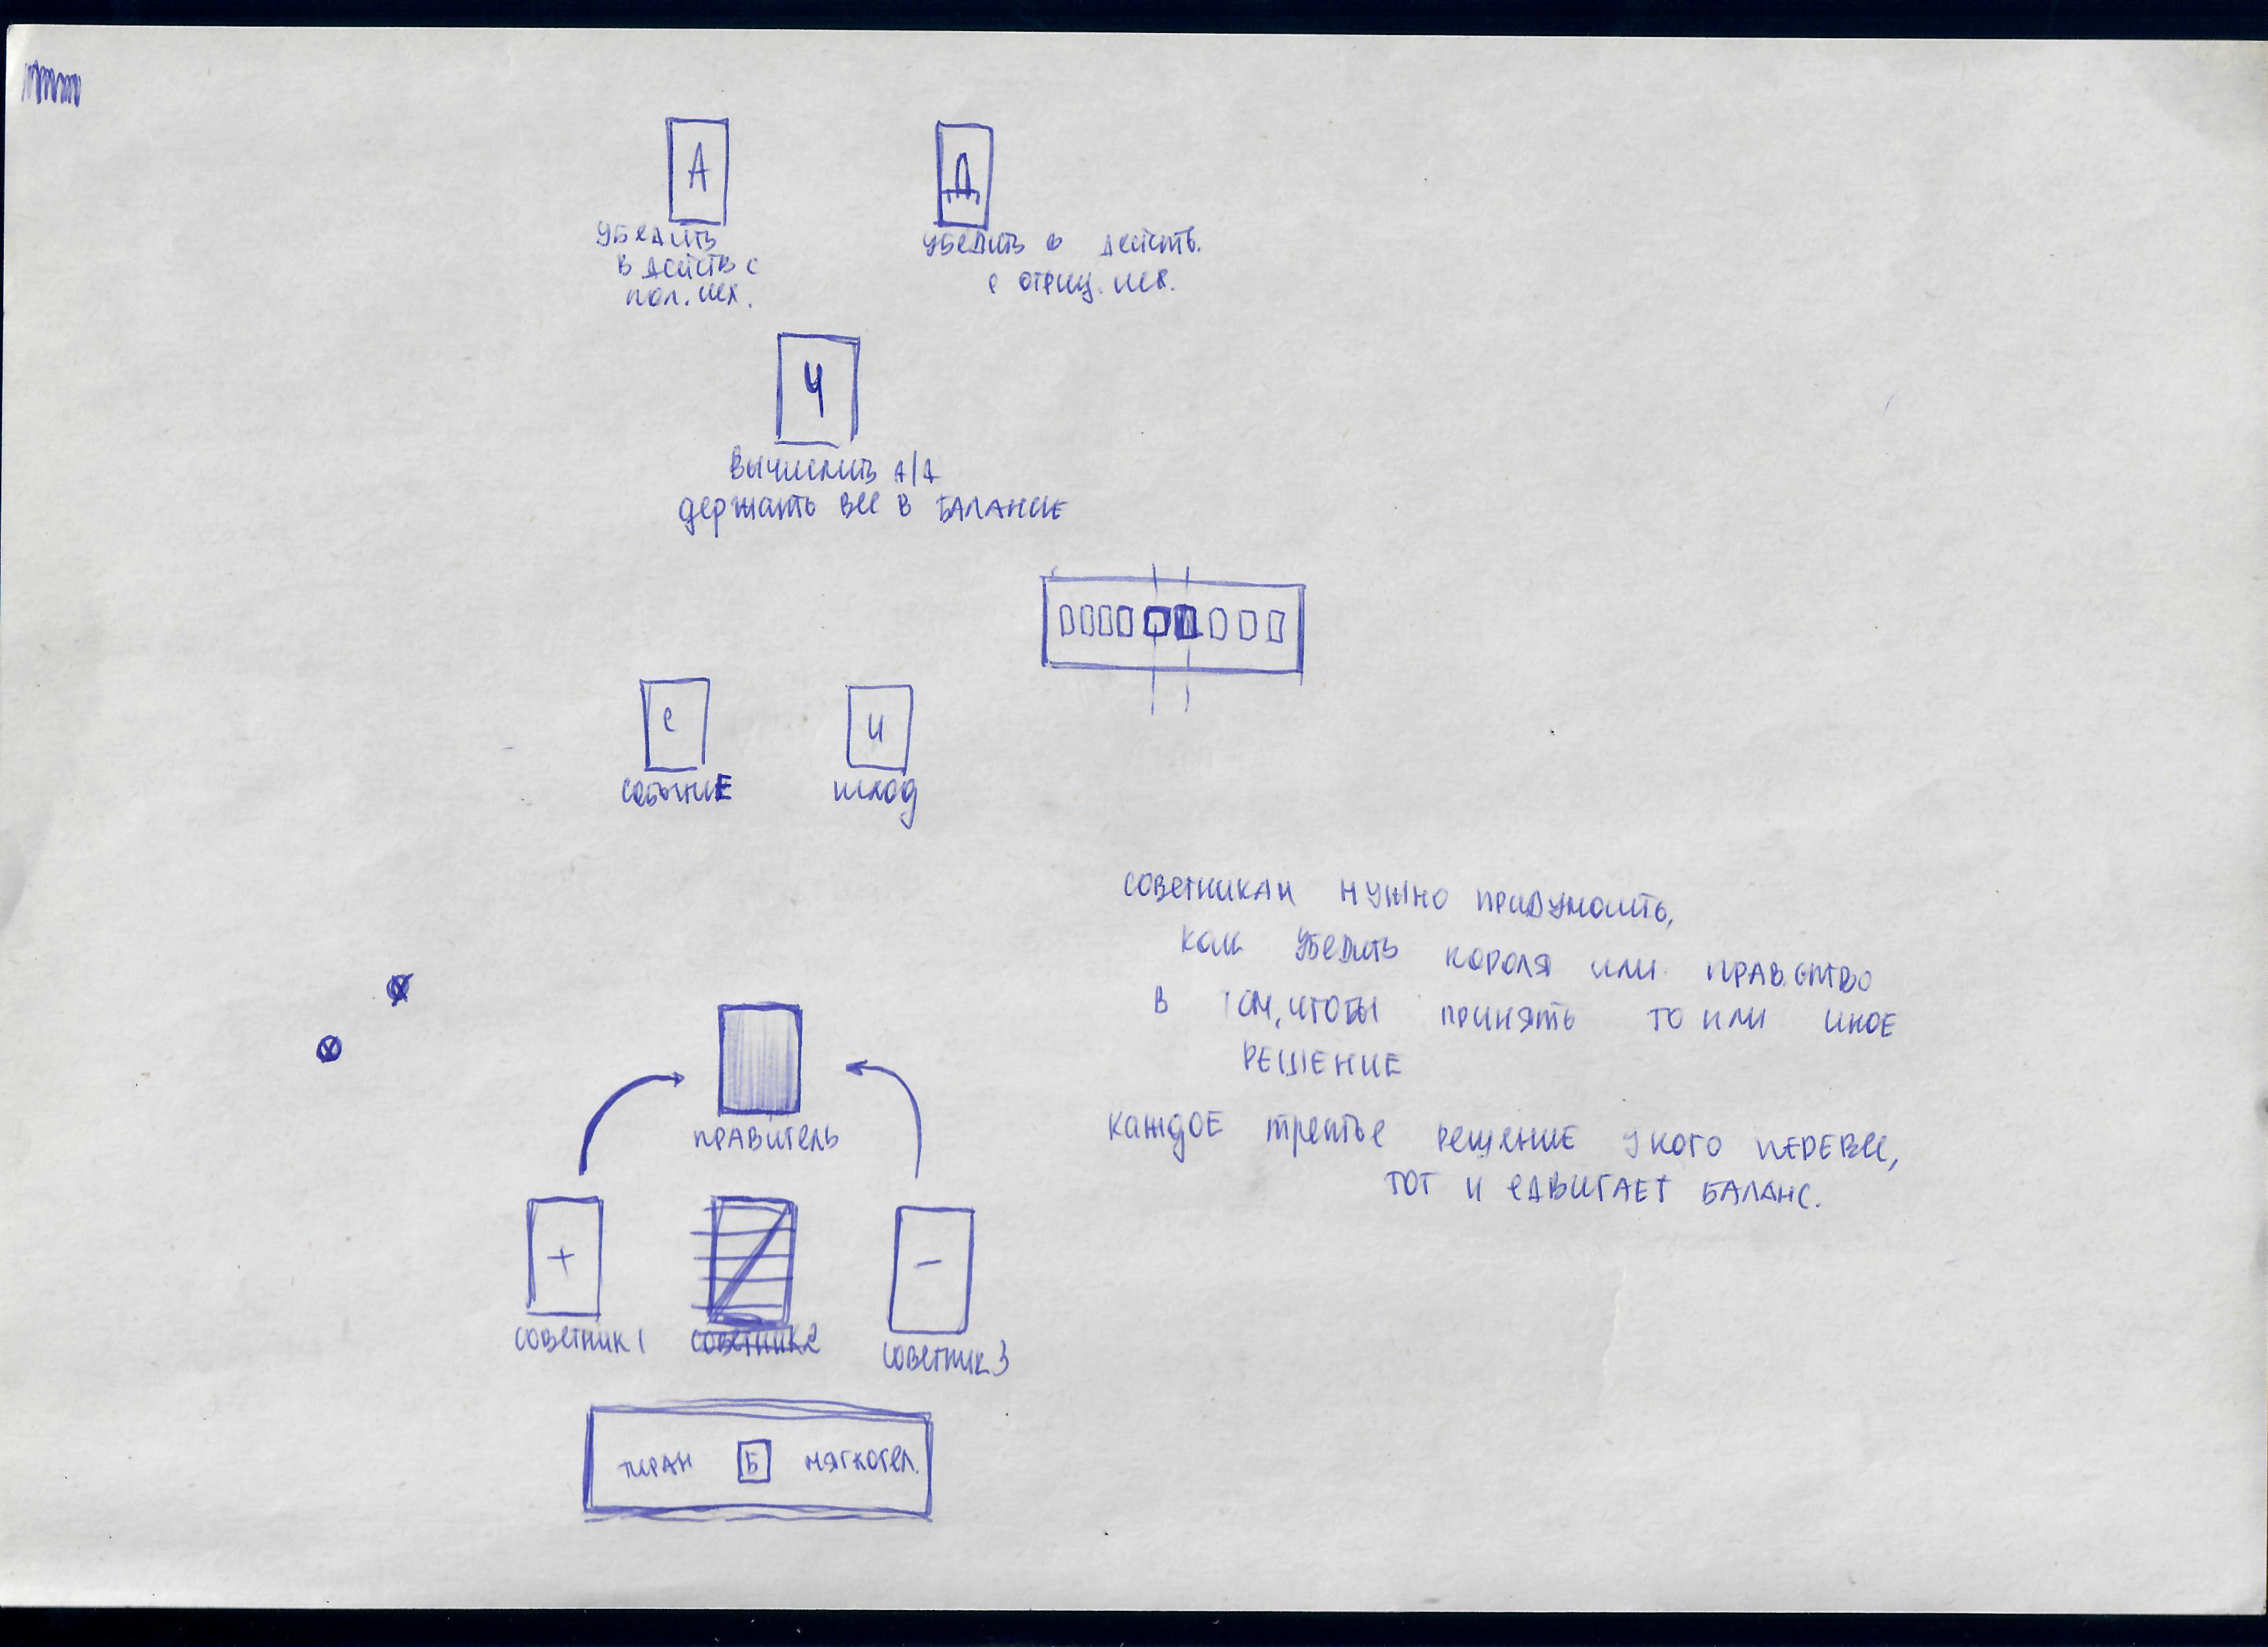 А
Д
УБЕДИТЬ
В ДЕЙСТВ С
ПОЛ. ИСХ.
УБЕДИТЬ В ДЕЙСТВ.
С ОТРИЦ. ИСХ.
Ч
ВЫЧИСЛИТЬ А/Д
держать ВСЕ В БАЛАНСЕ
С
И
СОБЫТИЕ
ИСХОД
СОВЕТНИКАМ НУЖНО ПРИДУМАТЬ,
КАК УБЕДИТЬ КОРОЛЯ ИЛИ ПРАВ.СТВО
В ТОМ, ЧТОБЫ ПРИНЯТЬ ТО ИЛИ ИНОЕ
РЕШЕНИЕ
КАЖДОЕ третье РЕШЕНИЕ У КОГО ПЕРЕВЕС,
ТОТ И СДВИГАЕТ БАЛАНС.
ПРАВИТЕЛЬ
+
−
СОВЕТНИК 1
СОВЕТНИК 2
СОВЕТНИК 3
ТИРАН Б МЯГКОТЕЛ.